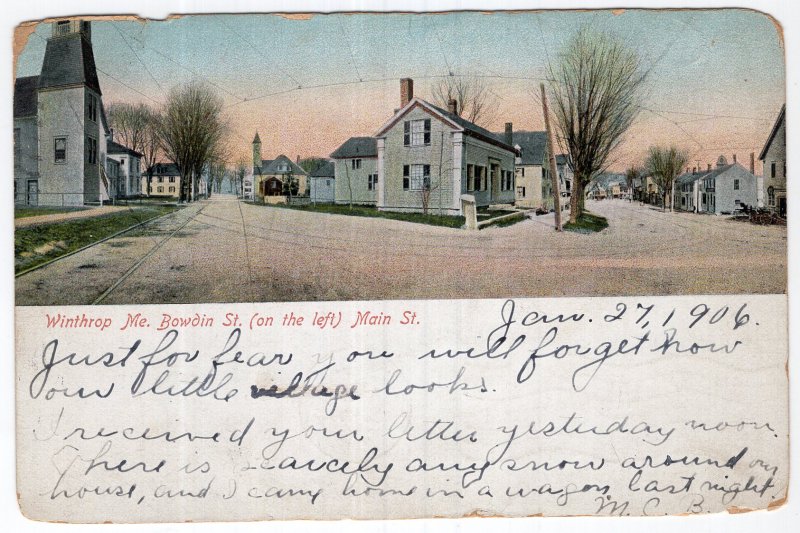 Winthrop Me. Bowdin St. (on the left) Main St.
Jan. 27, 1906.
Just for fear you will forget how
our little village looks.
I received your letter yesterday noon.
There is scarcely any snow around our
house, and I came home in a wagon last night.
M. C. B.